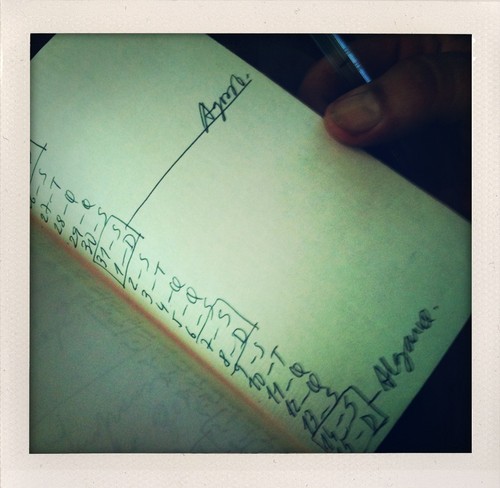 26 - S
27 - T
28 - Q
29 - Q
30 - S
31 - S
1 - D Agosto.
2 - S
3 - T
4 - Q
5 - Q
6 - S
7 - S
8 - D
9 - S
10 - T
11 - Q
12 - Q
13 - S
14 - S - Algarve.
15 - D